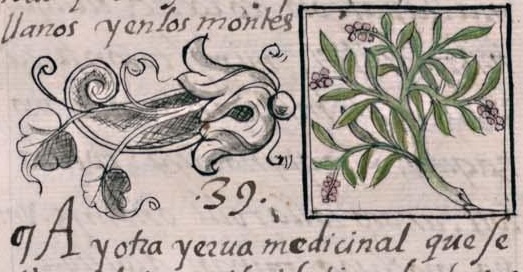 llanos y en los montes
.39.
¶ A y otra yerua medicinal que se